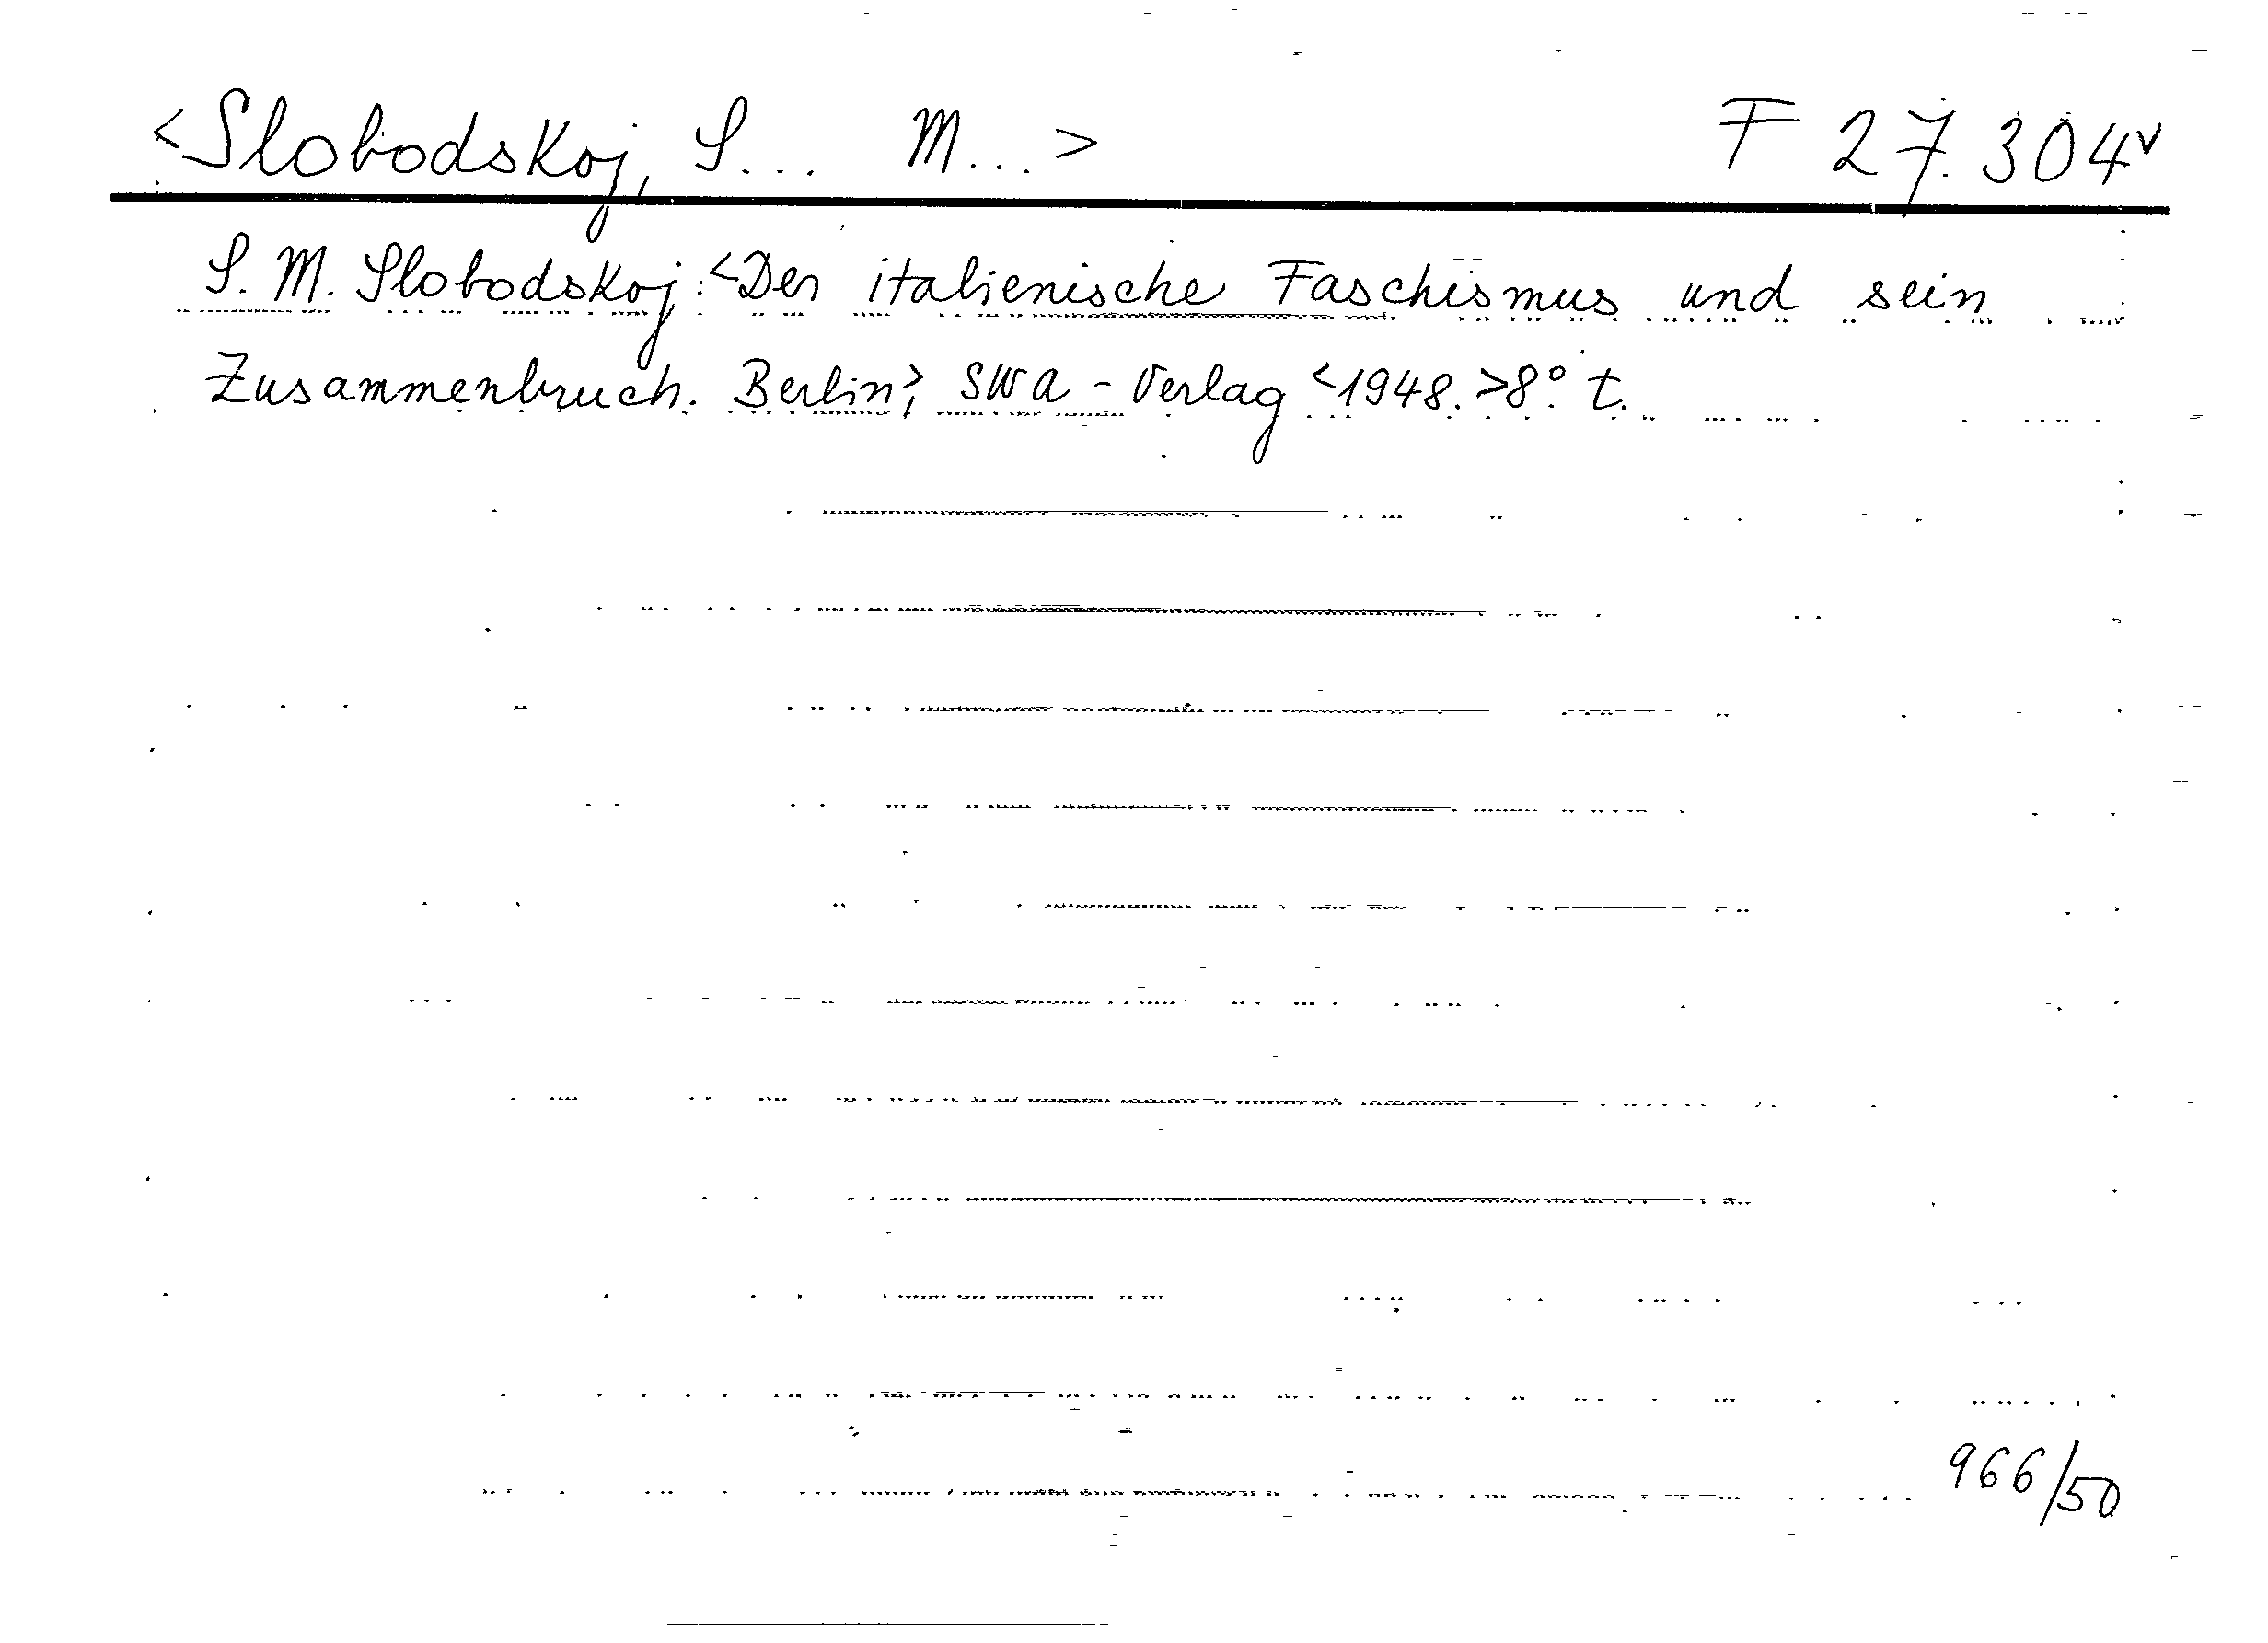 <Slobodskoj, S... M...> F 27.304v
S. M. Slobodskoj: <Der italienische Faschismus und sein
Zusammenbruch. Berlin>, SWA-Verlag <1948.> 8° t.
966/50